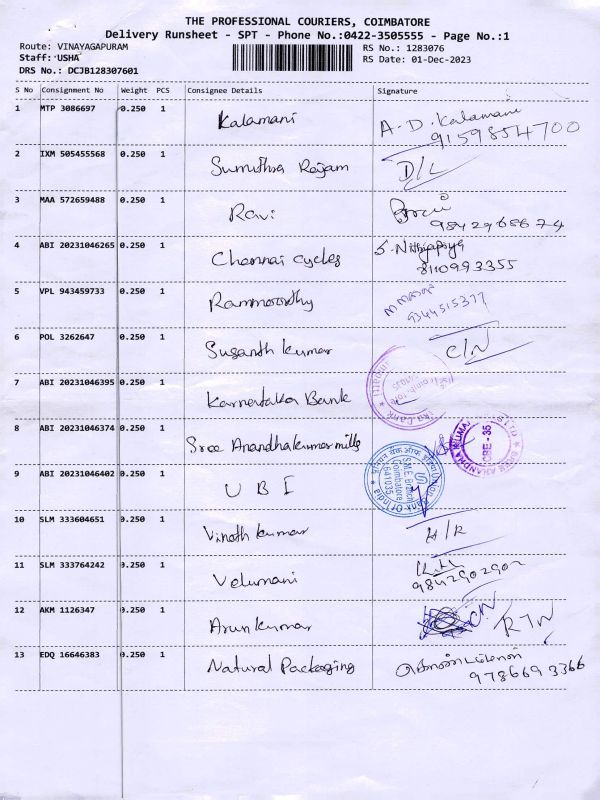 THE PROFESSIONAL COURIERS, COIMBATORE
Delivery Runsheet - SPT - Phone No.:0422-3505555 - Page No.:1
Route: VINAYAGAPURAM
RS No.: 1283076
Staff: USHA
RS Date: 01-Dec-2023
DRS No.: DCJB128307601
S No Consignment No Weight PCS Consignee Details Signature
1 MTP 3086697 0.250 1 Kalamani A. D. Kalamani
9159854700
2 IXM 505455568 0.250 1 Sumithra Rajam D/L
3 MAA 572659488 0.250 1 Ravi
9842968674
4 ABI 20231046265 0.250 1 Chennai cycles S. Nithyapriya
8110993355
5 VPL 943459733 0.250 1 Rammoorthy
9344515377
6 POL 3262647 0.250 1 Susanth kumar C/N
7 ABI 20231046395 0.250 1 Karnataka Bank
8 ABI 20231046374 0.250 1 Sree Anandhakumar mills
CBE - 35
9 ABI 20231046402 0.250 1 U B I
Union Bank Of India
S.M.E. Branch
Coimbatore
641035
10 SLM 333604651 0.250 1 Vinoth kumar H/R
11 SLM 333764242 0.250 1 Velumani
9842902902
12 AKM 1126347 0.250 1 Arun kumar C/N RTN
13 EDQ 16646383 0.250 1 Natural Packaging
9786693366